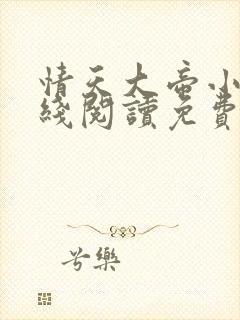 情天大帝小
綫閱讀免費
兮樂